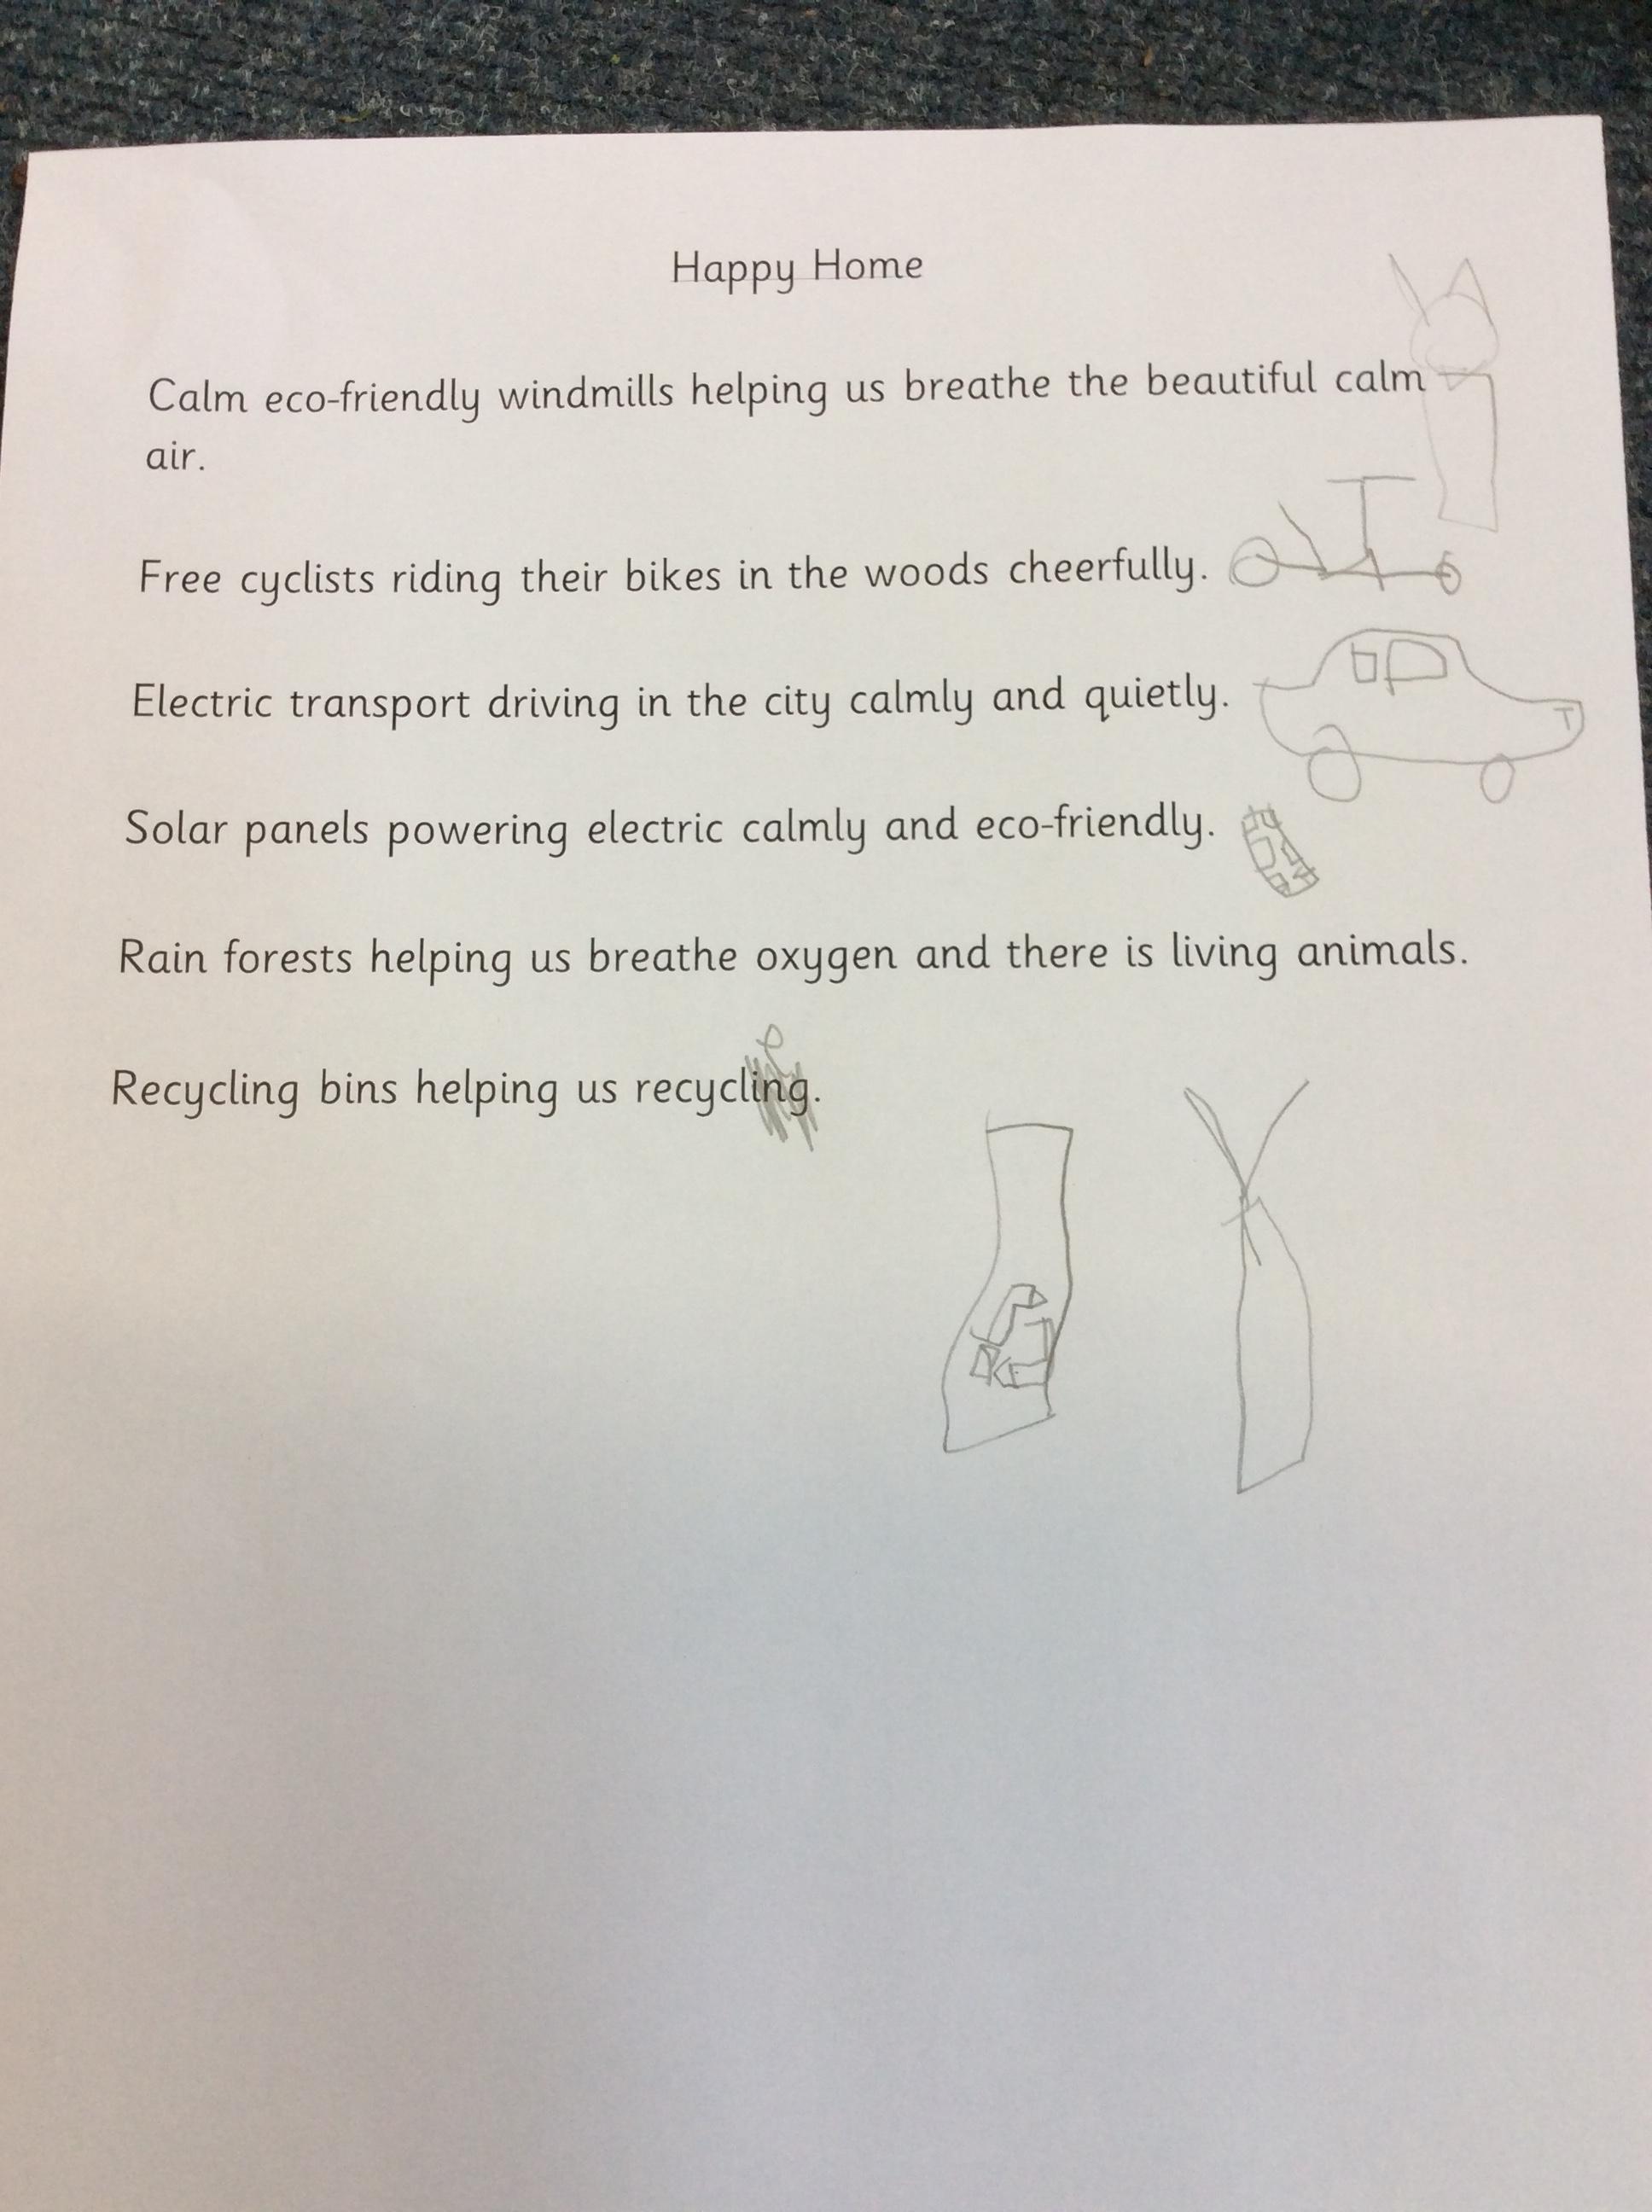 Happy Home
Calm eco-friendly windmills helping us breathe the beautiful calm
air.
Free cyclists riding their bikes in the woods cheerfully.
Electric transport driving in the city calmly and quietly.
Solar panels powering electric calmly and eco-friendly.
Rain forests helping us breathe oxygen and there is living animals.
Recycling bins helping us recycling.